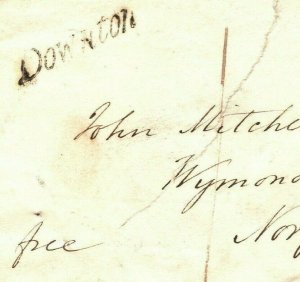 Downton
John Mitche
Wymond
free
Nor